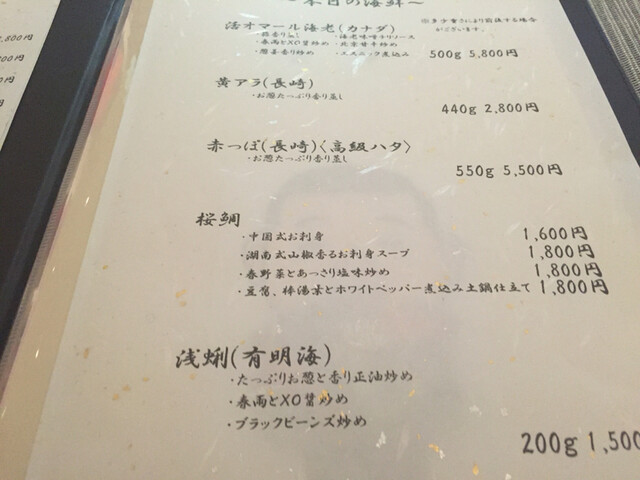 ～本日の海鮮～
活オマール海老(カナダ)
※多少重さにより前後する場合
がございます。
・蒜香り蒸し ・海老味噌チリソース
・春雨とXO醤炒め ・北京甘辛炒め
・葱姜香り炒め ・エスニック煮込み
500g 5,800円
黄アラ(長崎)
・お葱たっぷり香り蒸し
440g 2,800円
赤っぽ(長崎)〈高級ハタ〉
・お葱たっぷり香り蒸し
550g 5,500円
桜鯛
・中国式お刺身 1,600円
・湖南式山椒香るお刺身スープ 1,800円
・春野菜とあっさり塩味炒め 1,800円
・豆腐、棒湯葉とホワイトペッパー煮込み土鍋仕立て 1,800円
浅蜊(有明海)
・たっぷりお葱と香り正油炒め
・春雨とXO醤炒め
・ブラックビーンズ炒め
200g 1,500
,800円
00円
0円
円